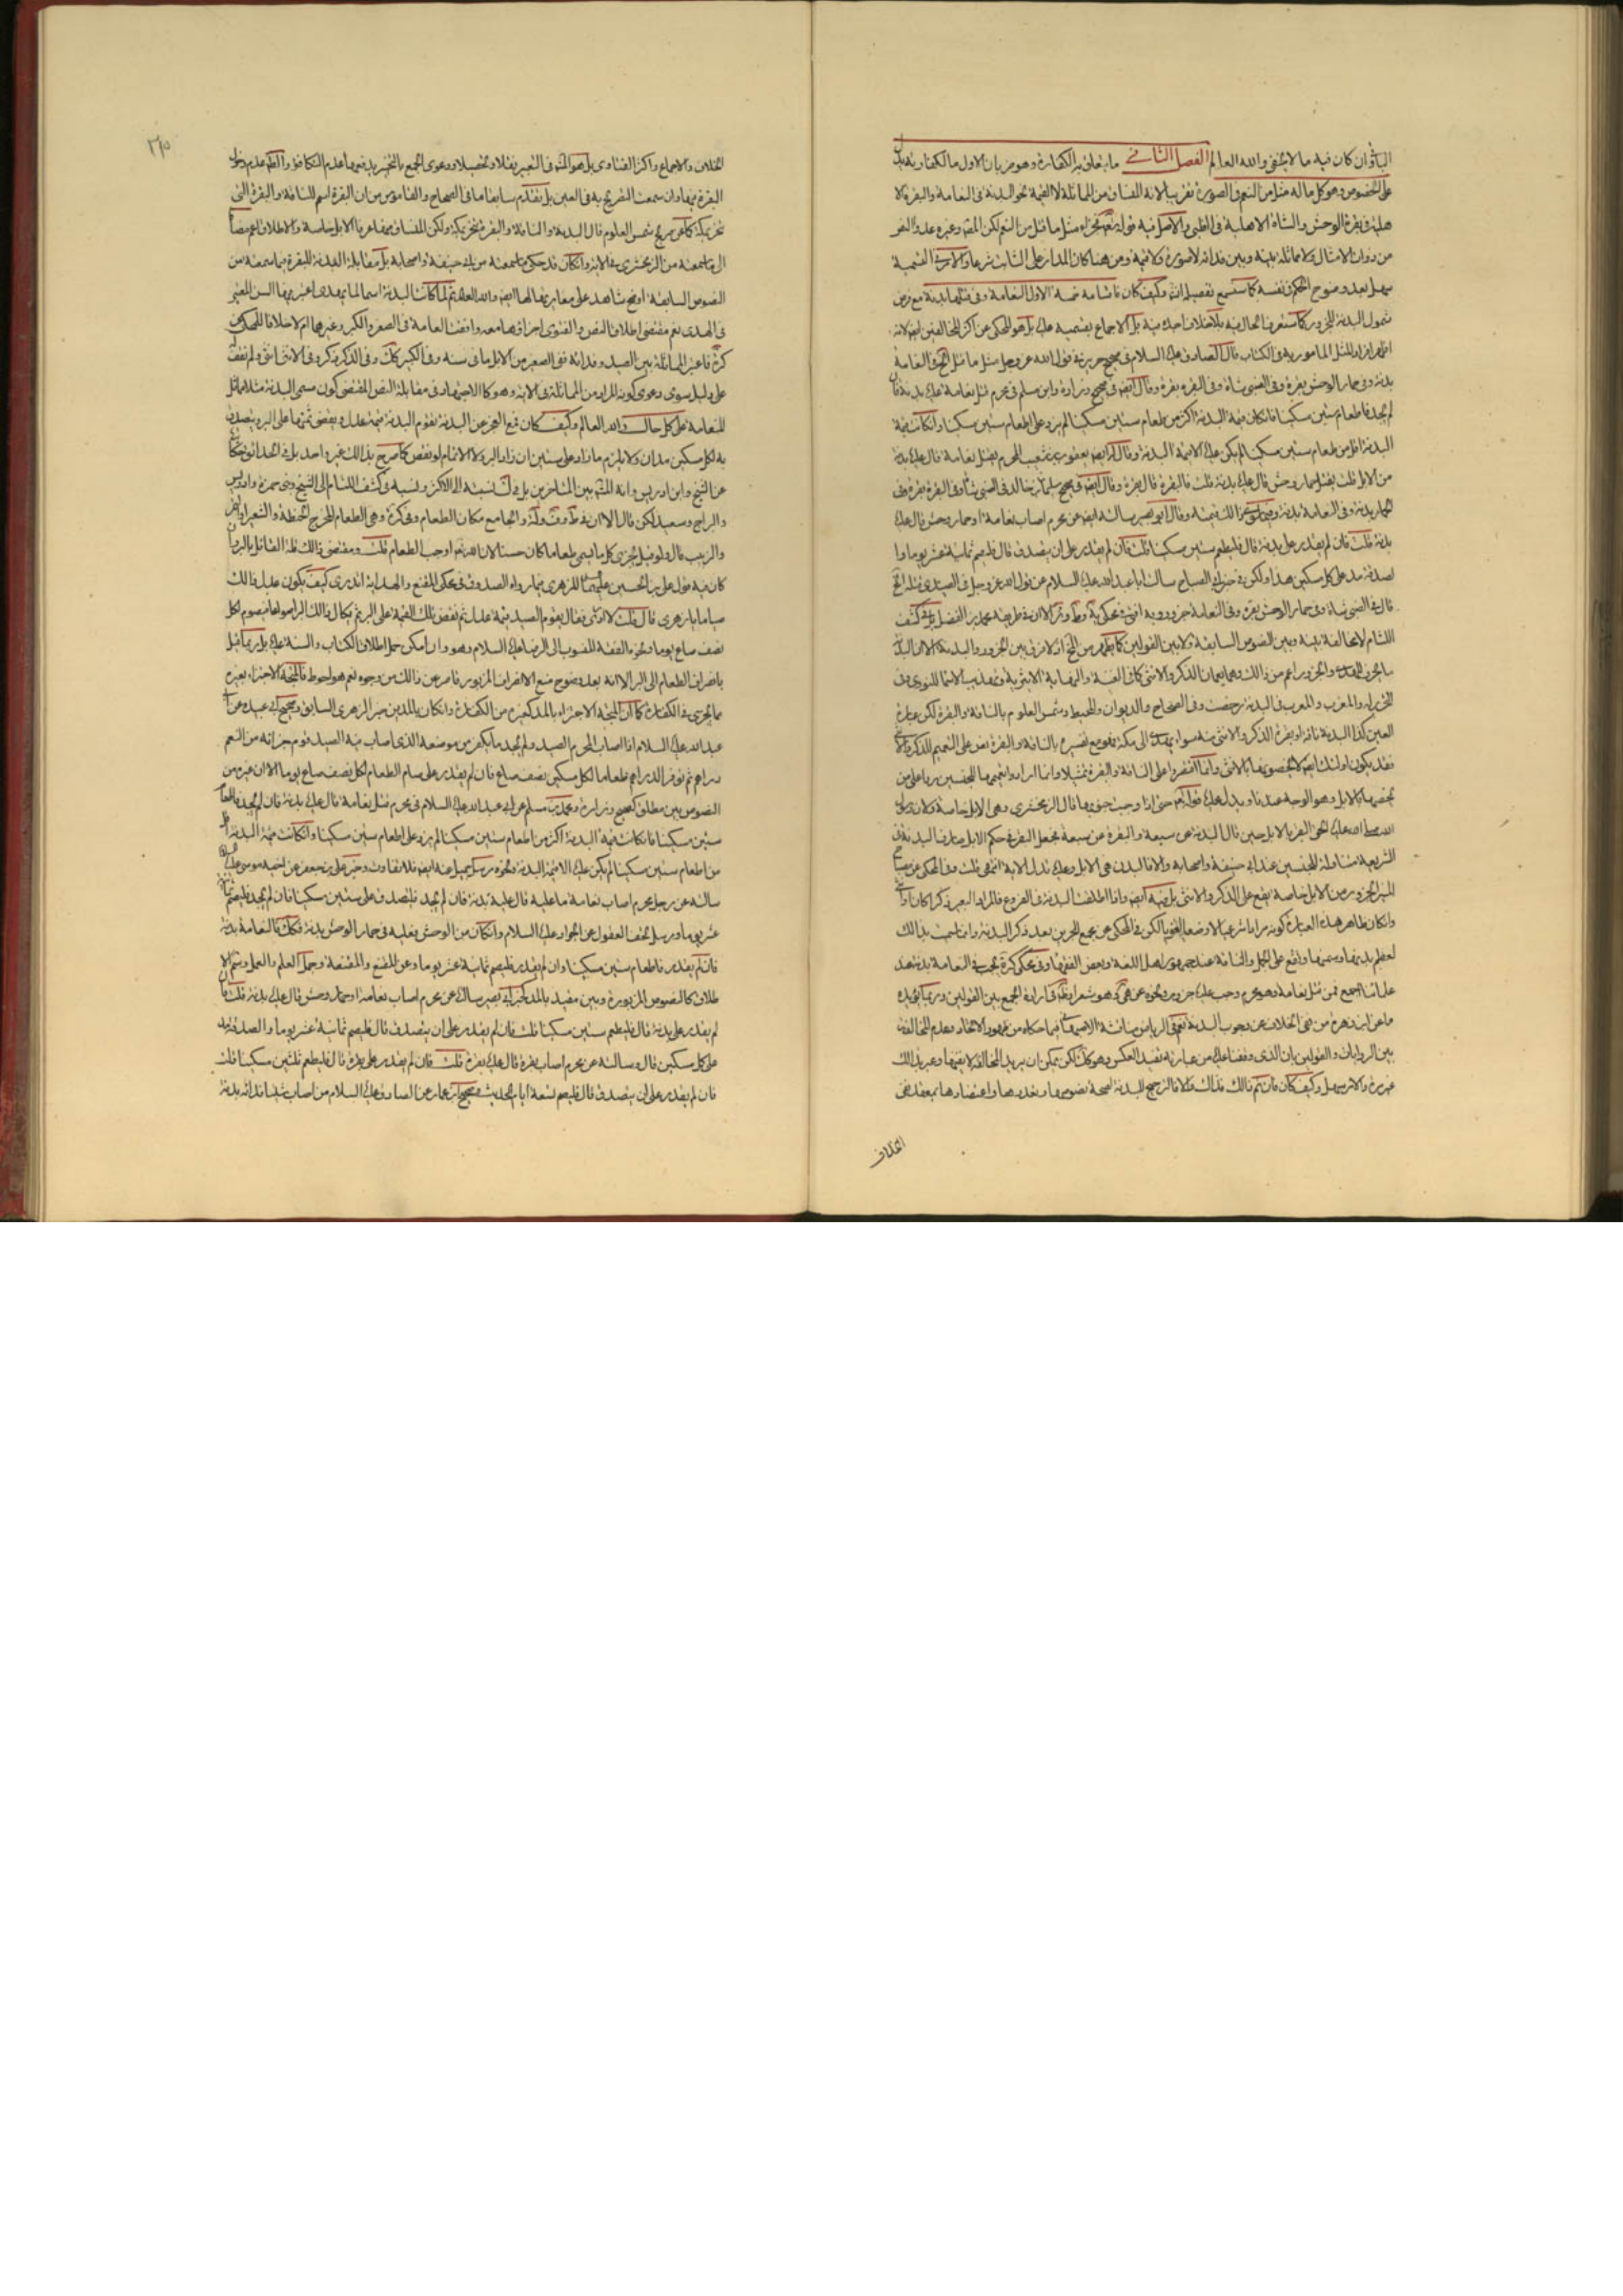 الباقي ان كان فيه ما لا يخفى والله العالم الفصل الثاني ما يتعلق به الكفارة وهو ضربان الاول ما لكفارته بدل
على الخصوص وهو كل ما له مثل من النعم في الصورة تقريبا لانه المنساق من المماثلة لا القيمة نحو البدنة في النعامة والبقرة الا
هلية في بقرة الوحش والشاة الاهلية في الظبي والاصل فيه قوله تعالى فجزاء مثل ما قتل من النعم لكن وغيره عدوا
من ذوات الامثال ولا مماثلة بينه وبين فدائه لا صورة ولا قيمة ومن هنا كان المدار على الثابت شرعا والامر في التسمية
سهل بعد وضوح الحكم في نفسه كما ستسمع تفصيله وكيف كان فاقسامه خمسة الاول النعامة وفي قتلها بدنة مع
شمول البدنة للجزور كما ستعرف الحال فيه بلا خلاف اجده فيه بل الاجماع بقسميه عليه بل هو المحكي عن اكثر المخالفين ايضا لانه
افراد المثل المامور به في الكتاب قال الصادق عليه السلام في صحيح حريز في قول الله عز وجل مثل ما قتل في النعامة
بدنة وفي حمار الوحش بقرة وفي الظبي شاة وفي البقرة بقرة وقال ايضا في صحيح زرارة وابن مسلم في محرم قتل نعامة عليه بدنة فان
لم يجد فاطعام ستين مسكينا فان كان قيمة البدنة اكثر من طعام ستين مسكينا لم يزد على اطعام ستين مسكينا وان كانت قيمة
البدنة اقل من طعام ستين مسكينا لم يكن عليه الا قيمة البدنة وقال ايضا يعقوب بن شعيب المحرم يقتل نعامة قال عليه بدنة
من الابل قلت يقتل حمار وحش قال عليه بدنة قلت فالبقرة قال بقرة وقال ايضا في صحيح سليمان بن خالد في الظبي شاة وفي البقرة بقرة وفي
الحمار بدنة وفي النعامة بدنة وفيما سوى ذلك قيمته وقال ابو بصير سالته ايضا عن محرم اصاب نعامة او حمار وحش قال عليه
بدنة قلت فان لم يقدر على بدنة قال فليطعم ستين مسكينا قلت فان لم يقدر على ان يتصدق قال فليصم ثمانية عشر يوما وا
لصدقة مد على كل مسكين هذا ولكن في خبر ابي الصباح سالت ابا عبد الله عليه السلام عن قول الله عز وجل في الصيد
قال في الظبي شاة وفي حمار الوحش بقرة وفي النعامة جزور وبه افتى في محكي الا ان في محمد بن الفضيل بل في كشف
اللثام لا مخالفة بينه وبين النصوص السابقة ولا بين القولين كما يظهر من لا فرق بين الجزور والبدنة الا ان البدنة
ما يحرز للهدي والجزور اعم من ذلك وهما يعمان الذكر والانثى كما في العين والنهاية الاثيرية وتهذيب الاسماء للنووي وفي
التحرير له والمعرب والمغرب في البدنة وفي الصحاح والديوان والمحيط وشمس العلوم بالناقة والبقرة لكن عبارة
العين كذا البدنة ناقة او بقرة الذكر والانثى فيه سواء يهدى الى مكة فهو مع تفسيره بالناقة والبقرة نص على التعميم للذكر والانثى
فقد يكون اولئك ايضا لا يخصونها بالانثى وانما اقتصروا على الناقة والبقرة تمثيلا وانما ارادوا تعميمها للجنسين ردا على من
يخصها بالابل وهو الوجه عندنا ويدل عليه قوله تعالى حتى اذا وجبت جنوبها قال الزمخشري وهي الابل خاصة ولان رسول
الله صلى الله عليه الحق البقر بالابل حين قال البدنة عن سبعة والبقرة عن سبعة فجعل البقر في حكم الابل صارت البدنة في
الشريعة متناولة للجنسين عند ابي حنيفة واصحابه والا فالبدن هي الابل وعليه تدل الاية انتهى قلت وفي المحكي عن مصباح
المنير الجزور من الابل خاصة يقع على الذكر والانثى بل فيه ايضا واذا اطلقت البدنة في الفروع فالمراد البعير ذكرا كان او انثى
وان كان ظاهر هذه العبارة كونه مرادا شرعيا لا وضعا لغويا لكن في المحكي عن مجمع البحرين بعد ذكر البدنة وانما سميت بذلك
لعظم بدنها وسمنها واقع على الجمل والناقة عند جمهور اهل اللغة وبعض الفقهاء وفي محكي كرة يجب في النعامة بدنة عند
علمائنا اجمع فمن قتل نعامة وهو محرم وجب عليه جزور ونحوه عن وهو مشعر في ارادة الجمع بين القولين وربما يؤيده
ما عن ابن زهرة من نفي الخلاف عن وجوب البدنة نعم في الرياض مناقشة فيما حكاه من ظهور الاتحاد وعدم المخالفة
بين الروايات والقولين بان الذي وقفنا عليه من عبارته تفيد العكس وهو لكن يمكن ان يريد المخالفة لا بقيها وغير ذلك
عزيزة والامر سهل وكيف كان فان تم ذلك فذاك والا فالترجيح للبدنة لصحة نصوصها وتعددها واعتضادها بمعقد نفي
الخلاف
٢١٥
الخلاف والاجماع واكثر الفتاوى بل هو في التعبير نقلا وتحصيلا ودعوى الجمع بالتخيير يدفعها عدم التكافؤ والظاهر عدم دخول
البقرة فيها وان سمعت التصريح به في العين بل تقدم سابقا ما في الصحاح والقاموس من ان البقرة اسم للناقة والبقرة التي
تنحر بمكة كما عن صريح شمس العلوم قال البدنة والناقة والبقرة تنحر بمكة ولكن المنساق منها عرفا الابل خاصة والاطلاق اعم
الى ما سمعته من الزمخشري في الاية وان كان قد حكى ما سمعته من ابي حنيفة واصحابه بل مقابلة البدنة للبقرة فيما سمعته من
النصوص السابقة اوضح شاهد على مغايرتها لها ايضا والله العالم ثم لما كانت البدنة اسما لما يهدى اعتبر فيها السن المعتبر
في الهدي نعم مقتضى اطلاق النص والفتوى اجزاؤها معه وافقت النعامة في الصغر والكبر وغيرهما ام لا خلافا للمحكي عن
كرة فاعتبر المماثلة بين الصيد وفدائه ففي الصغير من الابل ما في سنه وفي الكبير كذلك وفي الذكر ذكر وفي الانثى انثى ولم نقف
على دليل سوى دعوى كونه المراد من المماثلة في الاية وهو كالاجتهاد في مقابلة النص المقتضي كون مسمى البدنة مثلا مماثل
للنعامة على كل حال والله العالم وكيف كان فمع العجز عن البدنة تقوم البدنة قيمة عدل ويفض ثمنها على البر ويتصدق
به لكل مسكين مدان ولا يلزم ما زاد على ستين ان زاد البر ولا الاتمام لو نقص كما صرح بذلك غير واحد بل في الحدائق
عن الشيخ وابن ادريس وانه المشهور بين المتاخرين بل في نسبته الى الاكثر ونسبه في كشف اللثام الى الشيخ وبني حمزة وادريس
والبراج وسعيد لكن قال الا ان في والجامع مكان الطعام وفي كرة وهي الطعام المخرج الحنطة والشعير او التمر
والزبيب قال ولو قيل يجزي كلما يسمى طعاما كان حسنا لان الله تعالى اوجب الطعام قلت ومقتضى ذلك
كان فيه قول علي بن الحسين عليهما السلام للزهري فيما رواه الصدوق في محكي المقنع والهداية اتدري كيف يكون عدل ذلك
صياما يا زهري قال قلت لا ادري فقال يقوم الصيد قيمة عدل ثم تفض تلك القيمة على البر ثم يكال ذلك البر اصواعا فيصوم لكل
نصف صاع يوما ونحوه الفقه المنسوب الى الرضا عليه السلام وهو وان امكن حمل اطلاق الكتاب والسنة عليه بل ربما قيل
بانصراف الطعام الى البر الا انه بعد وضوح منع الانصراف المزبور قاصر عن ذلك من وجوه نعم هو احوط فالمتجه الاجتزاء بغيره
مما يجزي في الكفارة كما ان المتجه الاجتزاء بالمد كغيره من الكفارة وان كان بالمدين خبر الزهري السابق وصحيح ابي عبيدة عن ابي
عبد الله عليه السلام اذا اصاب المحرم الصيد ولم يجد ما يكفر من موضعه الذي اصاب فيه الصيد قوم جزائه من النعم
دراهم ثم قوم الدراهم طعاما لكل مسكين نصف صاع فان لم يقدر على الطعام صام لكل نصف صاع يوما الا ان غيره من
النصوص بين مطلق كصحيح زرارة ومحمد بن مسلم عن ابي عبد الله عليه السلام في محرم قتل نعامة قال عليه بدنة فان لم يجد فاطعام
ستين مسكينا فان كانت قيمة البدنة اكثر من اطعام ستين مسكينا لم يزد على اطعام ستين مسكينا وان كانت قيمة البدنة اقل
من اطعام ستين مسكينا لم يكن عليه الا قيمة البدنة ونحوه مرسل جميل عنه ايضا بلا تفاوت وخبر علي بن جعفر عن اخيه موسى عليه السلام
سالته عن رجل محرم اصاب نعامة ما عليه قال عليه بدنة فان لم يجد فليتصدق على ستين مسكينا فان لم يجد فليصم ثمانية
عشر يوما ومرسل تحف العقول عن الجواد عليه السلام وان كان من الوحش فعليه في حمار الوحش بدنة وكذلك النعامة بدنة
فان لم يقدر فاطعام ستين مسكينا وان لم يقدر فليصم ثمانية عشر يوما وعن المقنع والمقنعة وجمل العلم والعمل الا
طلاق كالنصوص المزبورة وبين مقيد بالمد كخبر ابي بصير سالته عن محرم اصاب نعامة او حمار وحش قال عليه بدنة قلت فان
لم يقدر على بدنة قال فليطعم ستين مسكينا قلت فان لم يقدر على ان يتصدق قال فليصم ثمانية عشر يوما والصدقة مد
على كل مسكين قال وسالته عن محرم اصاب بقرة قال عليه بقرة قلت فان لم يقدر على بقرة قال فليطعم ثلثين مسكينا قلت
فان لم يقدر على ان يتصدق قال فليصم تسعة ايام الحديث وصحيح ابن عمار عن الصادق عليه السلام من اصاب شيئا فدائه بدنة